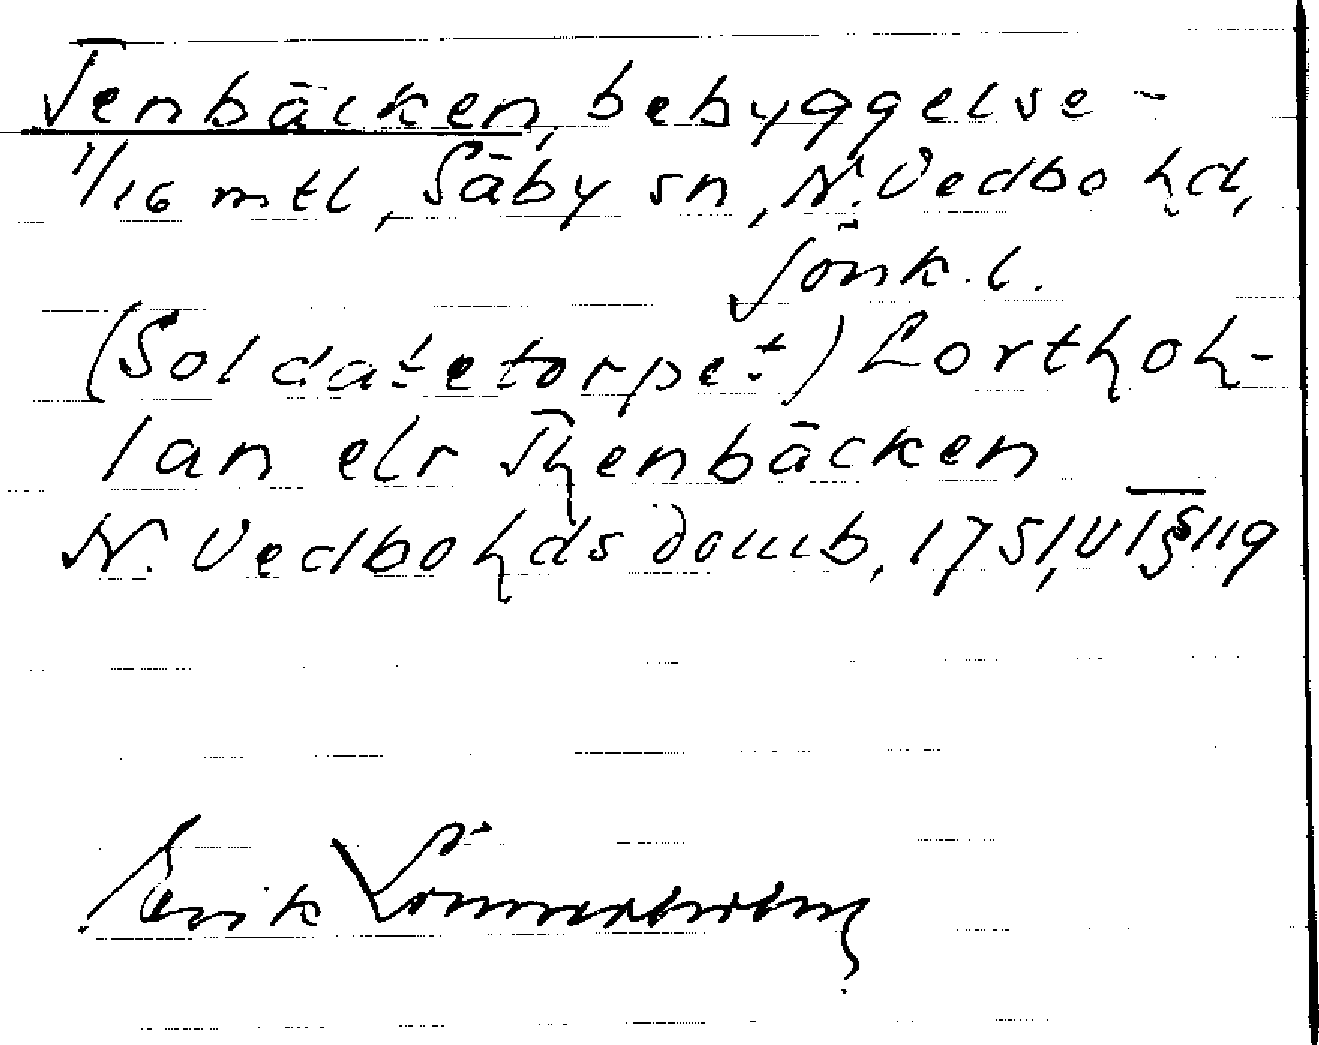 Tenbäcken, bebyggelse -
1/16 mtl, Säby sn, N. Vedbo hd,
Jönk. l.
(Soldatetorpet) Lorthoh-
lan elr Thenbäcken
N. Vedbo hds domb, 1751, VT § 119
Erik